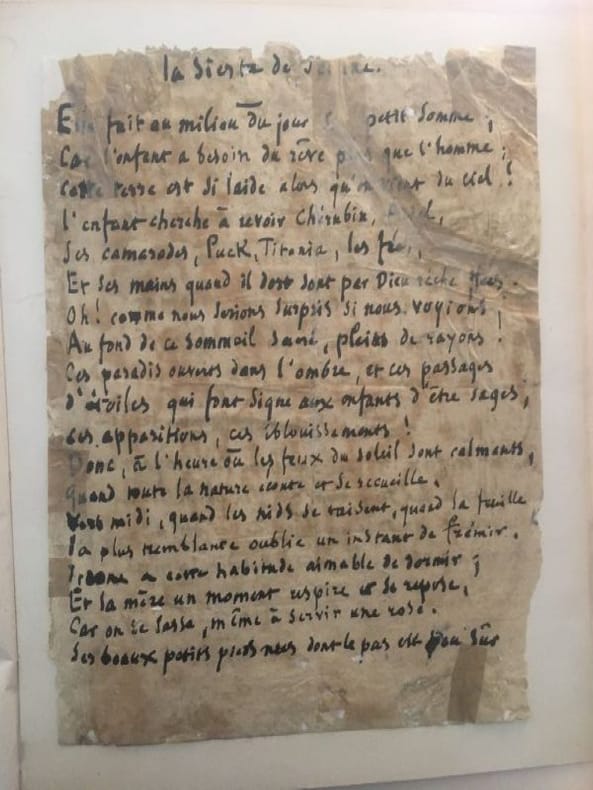 la Sieste de
Elle fait au milieu du jour petit Somme ;
Car l'enfant a besoin du rêve plus que l'homme ;
Cette terre est si laide alors qu'on vient du ciel !
L'enfant cherche à revoir Chérubin,
Ses camarades, Puck, Titania, les
Et ses mains quand il dort sont par Dieu
Oh ! comme nous serions surpris si nous voyions ;
Au fond de ce sommeil sacré, pleins de rayons !
Ces paradis ouverts dans l'ombre, et ces passages
d'étoiles qui font signe aux enfants d'être sages,
ces apparitions, ces éblouissements !
Donc, à l'heure où les feux du soleil sont calmants,
Quand toute la nature écoute et se recueille.
Vers midi, quand les nids se taisent, quand la feuille
la plus tremblante oublie un instant de frémir.
Jeanne a cette habitude aimable de dormir ;
Et la mère un moment respire et se repose,
Car on se lasse, même à servir une rose.
Ses beaux petits pieds nus dont le pas est peu sûr